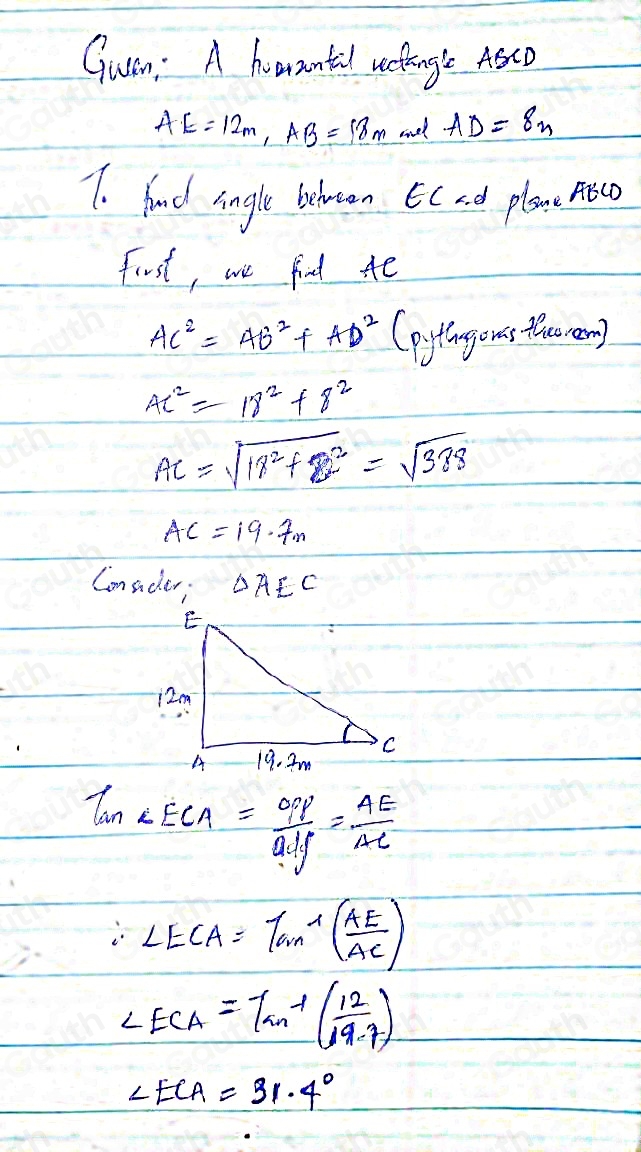 Given:- A horizontal rectangle ABCD
AE = 12m, AB = 18m and AD = 8m
To find angle between EC and plane ABCD
First, we find AC
AC² = AB² + AD² (pythagoras theorem)
AC² = 18² + 8²
AC = √18² + 8² = √388
AC = 19.7m
Consider; △AEC
E
12m
A 19.7m C
Tan ∠ECA = opp/adj = AE/AC
∴ ∠ECA = Tan⁻¹(AE/AC)
∠ECA = Tan⁻¹(12/19.7)
∠ECA = 31.4°